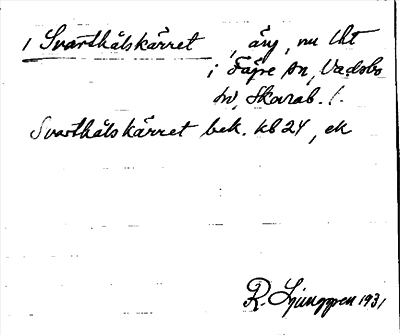 1 Svarthålskärret, äng, nu
i Färe sn, Vadsbo
hd, Skarab. l.
Svarthålskärret bek. kb 24, ek
R. Ljunggren 1931